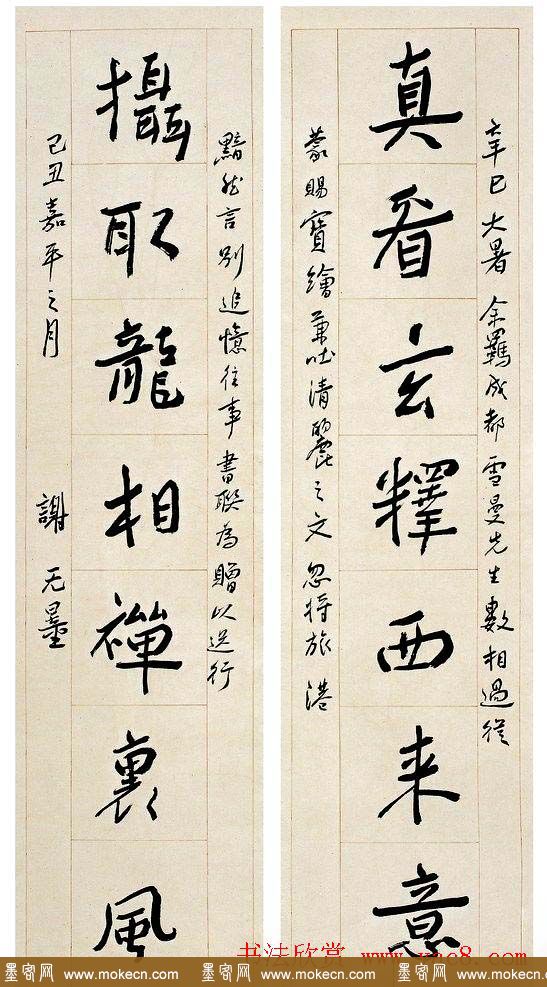 辛巳大暑余羈成都雪曼先生數相過從
真看玄釋西来意
蒙賜寶繪兼清麗之文忽将旅港
黯然言别追憶往事書聯為贈以送行
攝取龍相禪裏風
己丑嘉平之月 謝无量
书法欣赏 www.yac8.com
墨客网 www.mokecn.com 墨客网 www.mokecn.com 墨客网 www.mokecn.com